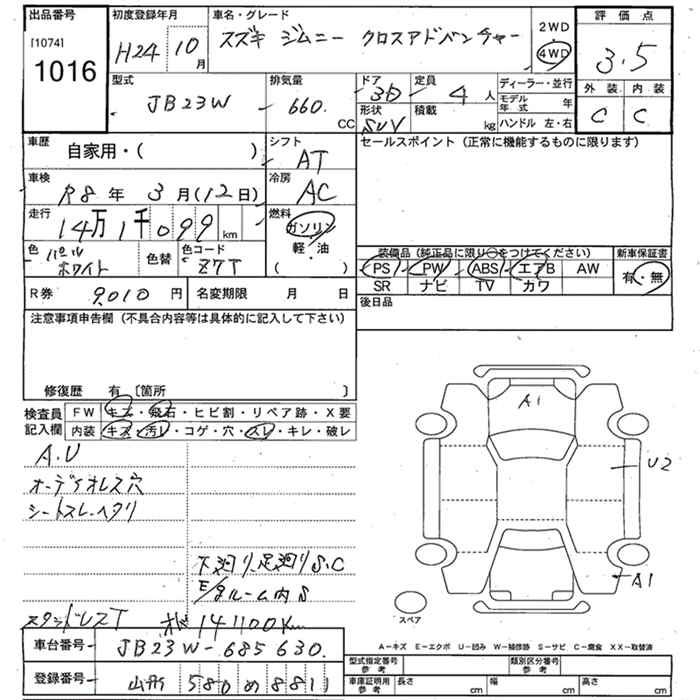 出品番号
[1074]
1016
初度登録年月
H24 10月
車名・グレード
スズキ ジムニー クロスアドベンチャー
2WD
4WD
評価点
3.5
外装 内装
C C
型式
JB23W
排気量
660.
CC
ドア 定員
3D 4人
形状 積載
SUV kg
ディーラー・並行
モデル年式 年
ハンドル 左・右
車歴
自家用・( )
シフト
AT
車検
R8年 3月(12日)
冷房
AC
走行
14万1千099km
燃料
ガソリン
軽・油
( )
色
パール
ホワイト
色替
色コード
Z7T
セールスポイント (正常に機能するものに限ります)
装備品 (純正品に限り○をつけてください)
PS PW ABS エアB AW
SR ナビ TV カワ
新車保証書
有・無
R券 9,010円
名変期限 月 日
後日品
注意事項申告欄 (不具合内容等は具体的に記入して下さい)
修復歴 有 [箇所 ]
検査員記入欄
FW キズ・飛石・ヒビ割・リペア跡・X要
内装 キズ・汚レ・コゲ・穴・スレ・キレ・破レ
A.U
オーディオレス穴
シートスレ.ヘタリ
下廻り足廻りS.C
E/gルーム内S
スタッドレスT
141100Km
A1
U2
A1
スペア
A-キズ E-エクボ U-凹み W-補修跡 S-サビ C-腐食 XX-取替済
車台番号 JB23W-685630.
登録番号 山形 580 め 8811
型式指定番号 参考
類別区分番号 参考
車庫証明用 参考
長さ cm
幅 cm
高さ cm